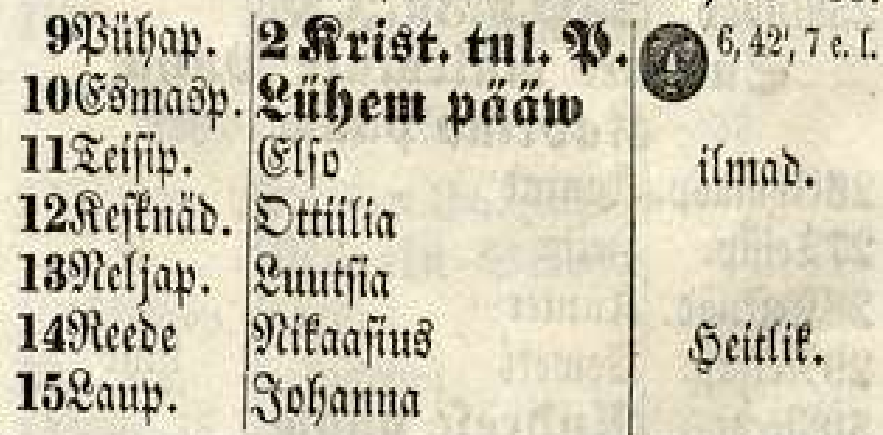 9 Pühap. 2 Krist. tul. P. 6, 42', 7 e. l.
10 Esmasp. Lühem pääw
11 Teisip. Elso ilmad.
12 Kesknäd. Ottiilia
13 Neljap. Luutsia
14 Reede Nikaasius Heitlik.
15 Laup. Johanna